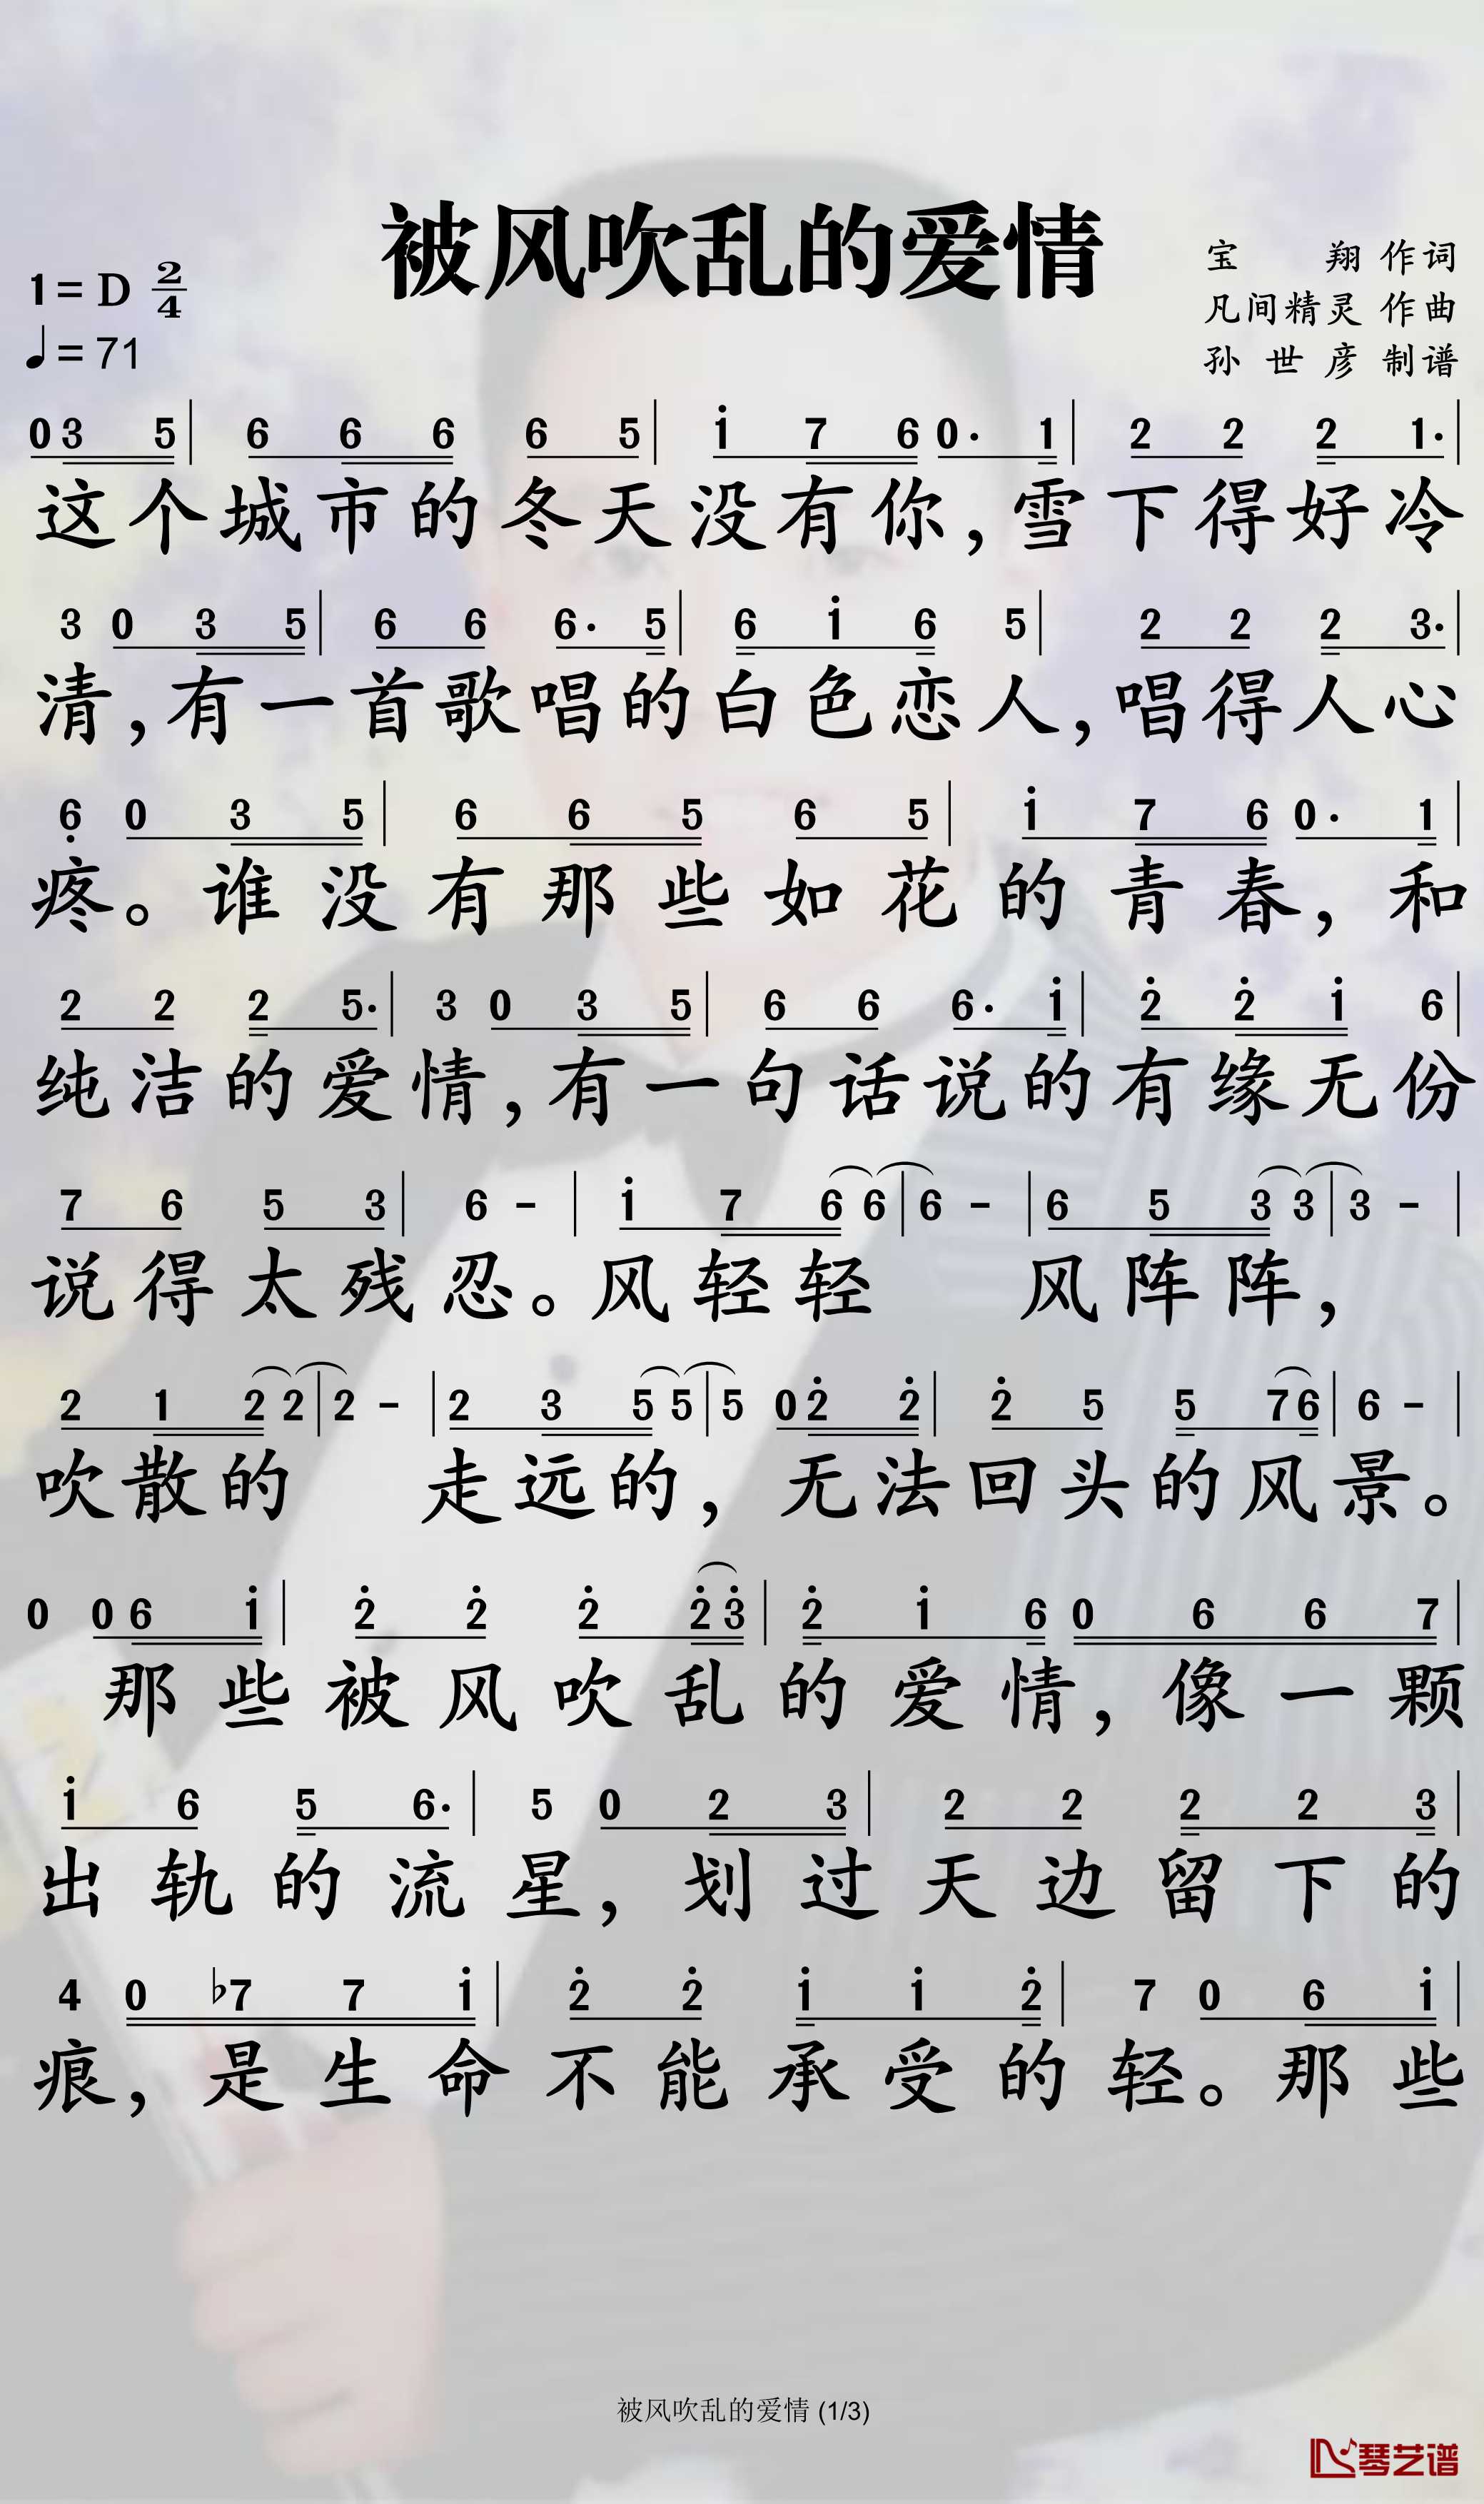 被风吹乱的爱情
1=D 2/4
♩=71
宝 翔 作词
凡间精灵 作曲
孙 世 彦 制谱
0 3 5 | 6 6 6 6 5 | i 7 6 0· 1 | 2 2 2 1· |
这个城市的冬天没有你，雪下得好冷
3 0 3 5 | 6 6 6· 5 | 6 i 6 5 | 2 2 2 3· |
清，有一首歌唱的白色恋人，唱得人心
6̣ 0 3 5 | 6 6 5 6 5 | i 7 6 0· 1 |
疼。谁没有那些如花的青春，和
2 2 2 5· | 3 0 3 5 | 6 6 6· i | 2̇ 2̇ i 6 |
纯洁的爱情，有一句话说的有缘无份
7 6 5 3 | 6 - | i 7 6 6 | 6 - | 6 5 3 3 | 3 - |
说得太残忍。风轻轻 风阵阵，
2 1 2 2 | 2 - | 2 3 5 5 | 5 0 2̇ 2̇ | 2̇ 5 5 7 6 | 6 - |
吹散的 走远的，无法回头的风景。
0 0 6 i | 2̇ 2̇ 2̇ 2̇ 3̇ | 2̇ i 6 0 6 6 7 |
那些被风吹乱的爱情，像一颗
i 6 5 6· | 5 0 2 3 | 2 2 2 2 3 |
出轨的流星，划过天边留下的
4 0 ♭7 7 i | 2̇ 2̇ i i 2̇ | 7 0 6 i |
痕，是生命不能承受的轻。那些
被风吹乱的爱情 (1/3)
琴艺谱